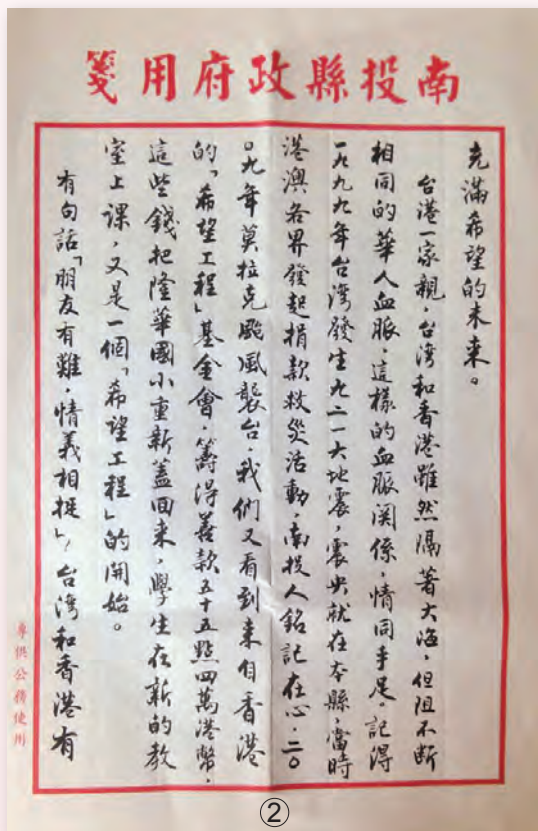 南投縣政府用箋
充滿希望的未來。
台港一家親，台灣和香港雖然隔著大海，但阻不斷
相同的華人血脈，這樣的血脈関係，情同手足。記得
一九九九年台灣發生九二一大地震，震央就在本縣，當時
港澳各界發起捐款救災活動，南投人銘記在心，二〇
〇九年莫拉克颱風襲台，我們又看到來自香港
的「希望工程」基金會，籌得善款五十五點四萬港幣，
這些錢把隆華國小重新蓋回來，學生在新的教
室上課，又是一個「希望工程」的開始。
有句話「朋友有難，情義相挺」，台灣和香港有
專供公務使用
②